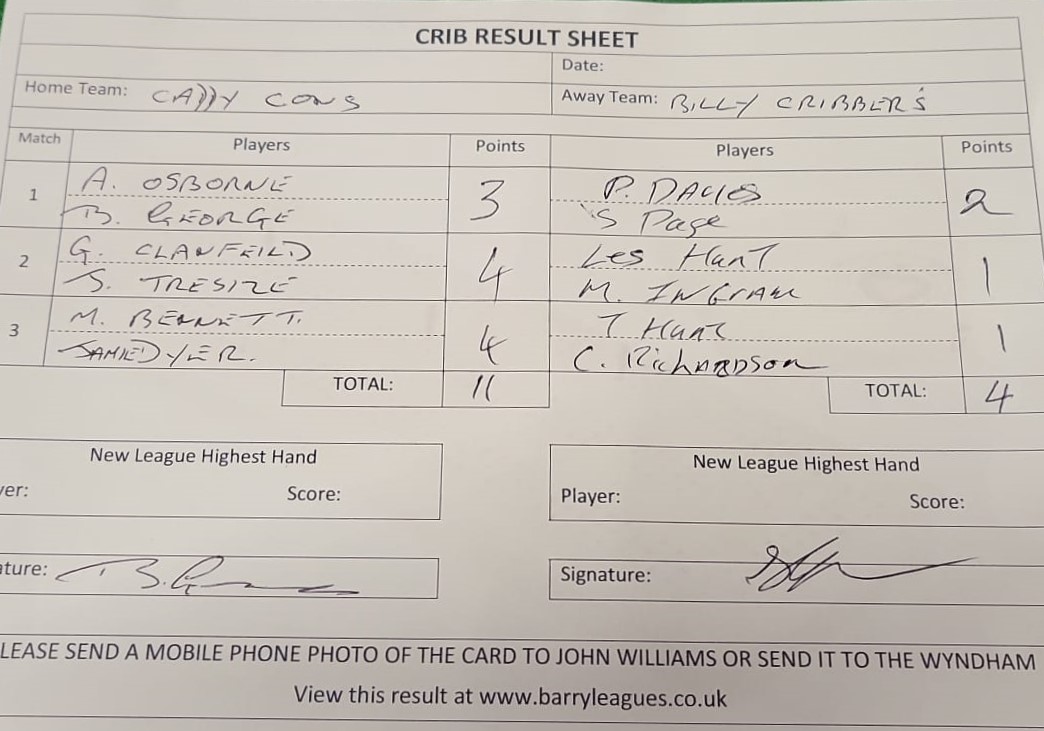 CRIB RESULT SHEET
Date:
Home Team: CADDY CONS Away Team: BILLY CRIBBER'S
Match Players Points Players Points
A. OSBORNE P. DAVIES
1 3 2
B. GEORGE S Page
G. CLANFEILD Les Hant
2 4 1
S. TRESIZE M. INGRAM
M. BENNETT. T Hant
3 4 1
JAMIE DYER. C. RichARDSon
TOTAL: 11 TOTAL: 4
New League Highest Hand New League Highest Hand
yer: Score: Player: Score:
ature: B. G Signature:
LEASE SEND A MOBILE PHONE PHOTO OF THE CARD TO JOHN WILLIAMS OR SEND IT TO THE WYNDHAM
View this result at www.barryleagues.co.uk